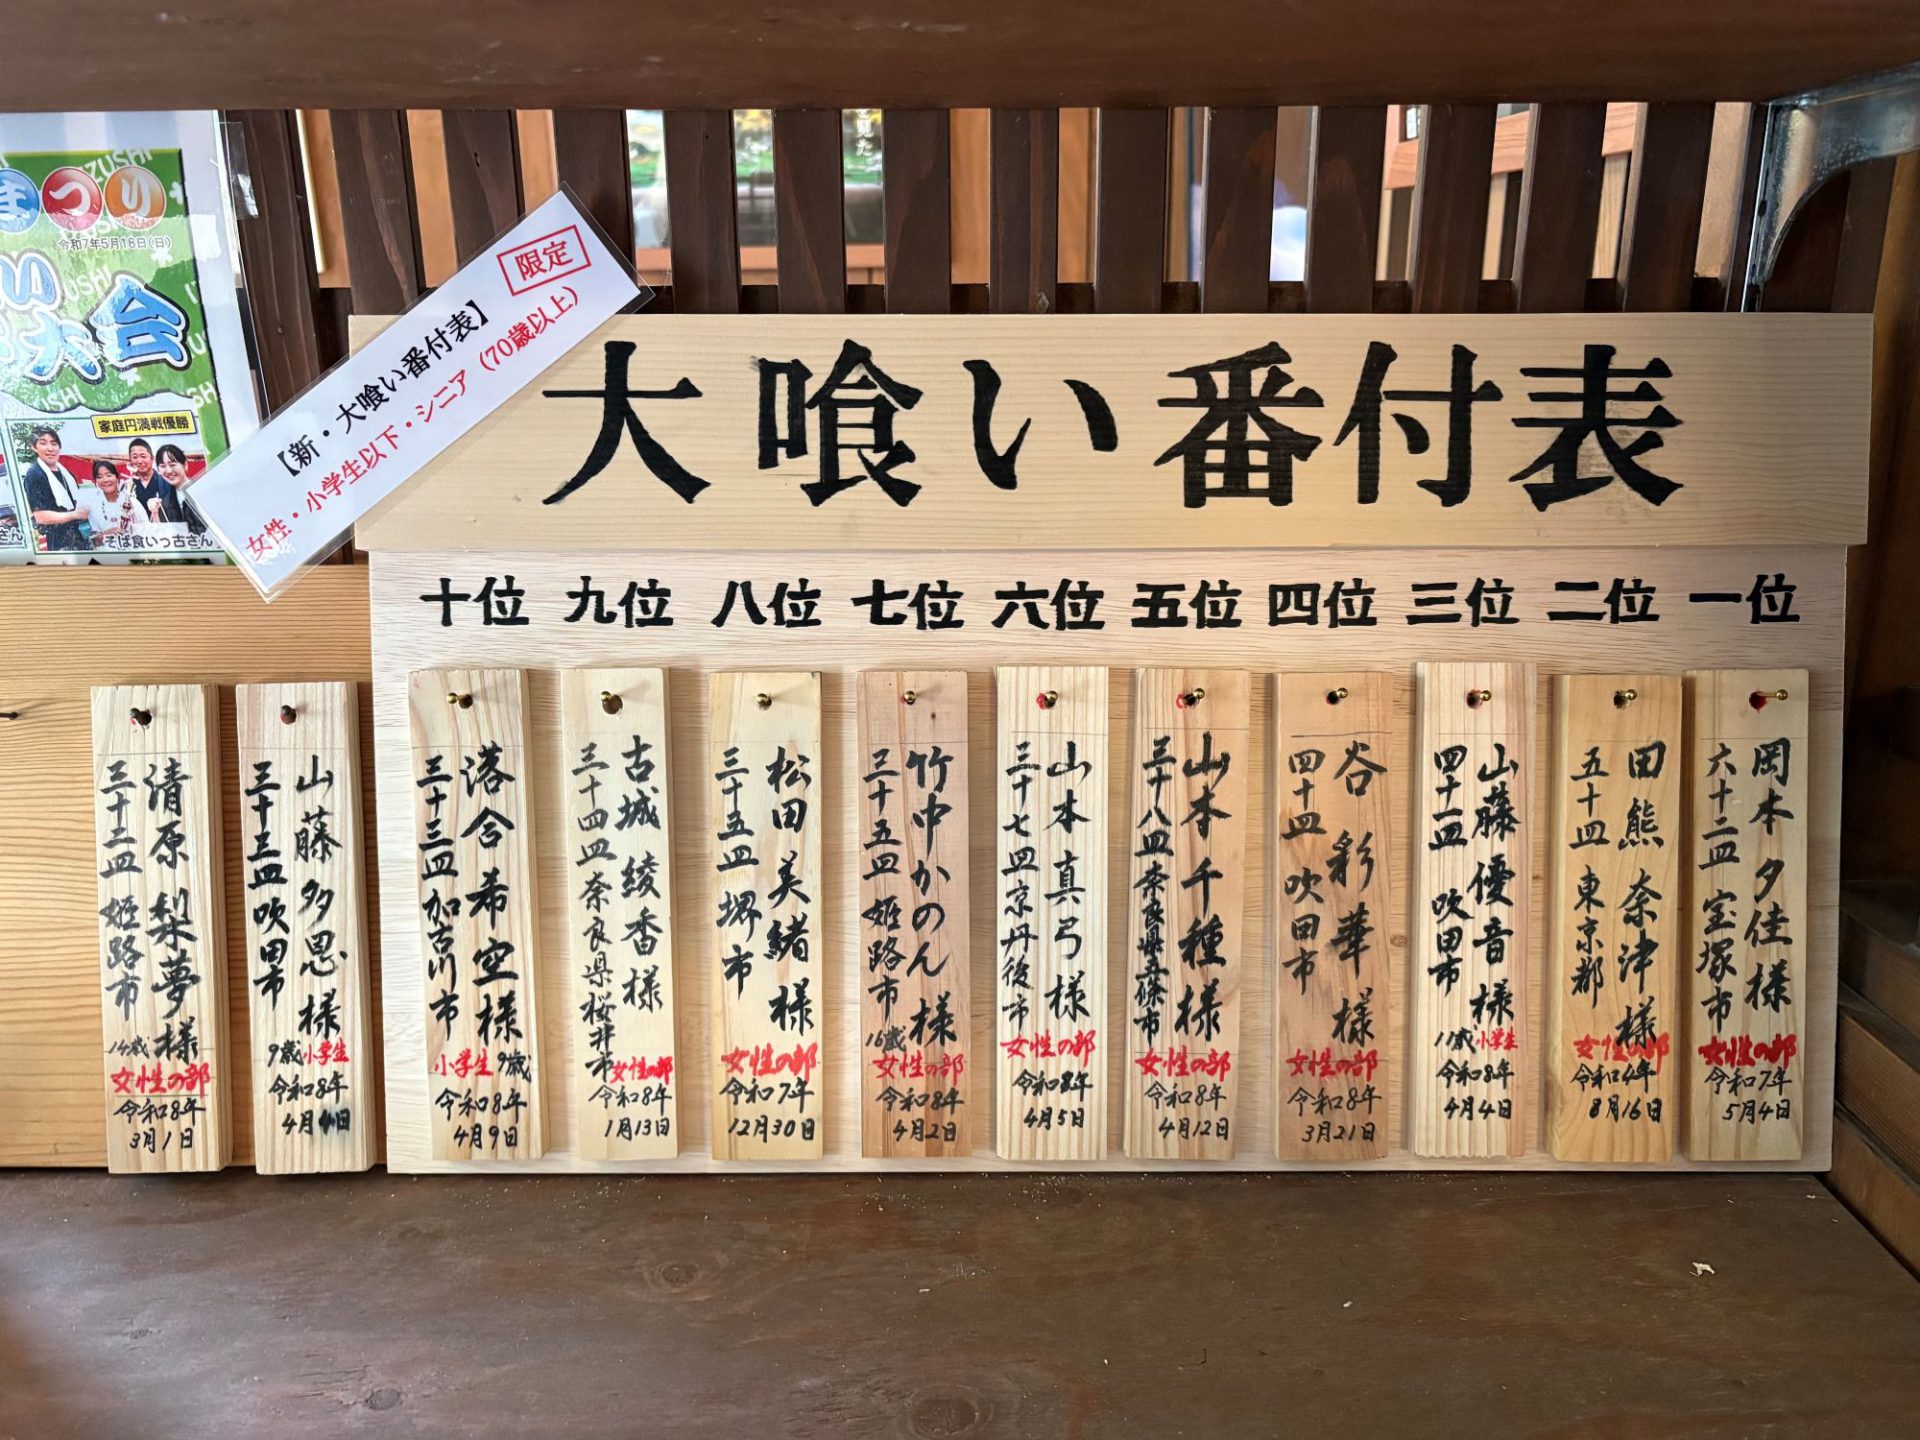 まつり
令和7年5月18日(日)
家庭円満戦優勝
そば食いっ古さん
【新・大喰い番付表】
限定
女性・小学生以下・シニア(70歳以上)
大喰い番付表
一位
二位
三位
四位
五位
六位
七位
八位
九位
十位
岡本夕佳様
六十二皿 宝塚市
女性の部
令和7年
5月4日
田熊奈津様
五十皿 東京都
女性の部
令和4年
8月16日
山藤優音様
四十一皿 吹田市
11歳 小学生
令和8年
4月4日
谷彩華様
四十皿 吹田市
女性の部
令和8年
3月21日
山本千種様
三十八皿 奈良県五條市
女性の部
令和8年
4月12日
山本真弓様
三十七皿 京丹後市
女性の部
令和8年
4月5日
竹中かのん様
三十五皿 姫路市
16歳
女性の部
令和8年
4月2日
松田美緒様
三十五皿 堺市
女性の部
令和7年
12月30日
古城綾香様
三十四皿 奈良県桜井市
女性の部
令和8年
1月13日
落合希空様
三十三皿 加古川市
小学生 9歳
令和8年
4月9日
山藤多恩様
三十三皿 吹田市
9歳 小学生
令和8年
4月4日
清原梨夢様
三十二皿 姫路市
14歳
女性の部
令和8年
3月1日